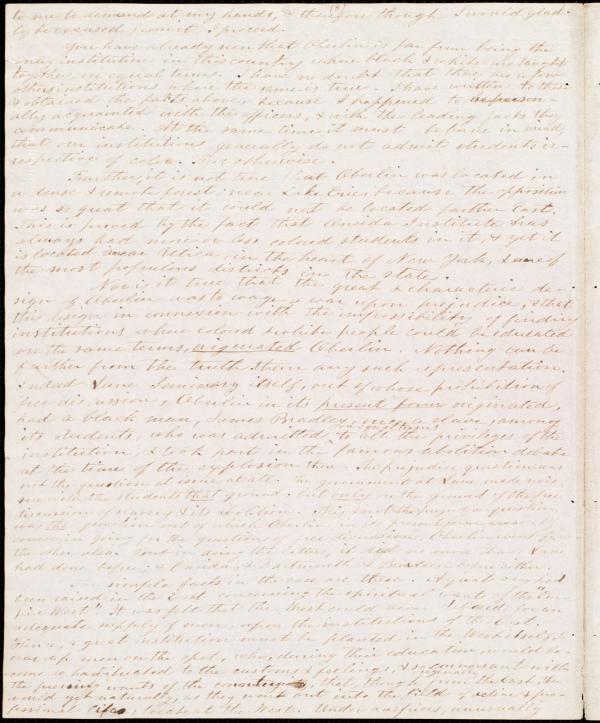 to me to demand at my hands, & therefore though I would glad-
ly be excused from it, I proceed.
You have already seen that Oberlin is far from being the
only institution in this country where black & white are taught
together on equal terms. I have no doubt that there are a few
other institutions where the same is true. I have written to these
& obtained the facts above, because I happened to be person-
ally acquainted with the officers, & with the leading facts they
communicate. At the same time it must be borne in mind,
that our institutions generally do not admit students ir-
respective of color. Far otherwise.
Farther, it is not true that Oberlin was located in
a dense & remote forest near Lake Erie, because the opposition
was so great that it could not be located farther East.
This is proved by the fact that Oneida Institute has
always had more or less colored students in it, & yet it
is located near Utica in the heart of New York, & one of
the most populous districts in the state.
Nor is it true that the great & characteristic de-
sign of Oberlin was to wage a war upon prejudice, & that
this design in connexion with the impossibility of finding
institutions where colored & white people could be educated
on the same terms, originated Oberlin. Nothing can be
farther from the truth than any such representation.
Indeed Lane Seminary itself, out of whose prohibition of
free discussion, Oberlin in its present form originated,
had a black man, James Bradley, once a slave, among
its students, who was admitted to all the privileges of the
institution, & took part in the famous abolition debate
at the time of the explosion there. The prejudice question was
not the question at issue at all. The government at Lane made no is-
sue with the students on that ground, but only on the ground of the free
discussion of slavery & its abolition. This, not the prejudice question,
was the question out of which Oberlin in its present form arose. Of
course in going for the question of free discussion, Oberlin went for
the other also. But in doing the latter, it did no more than Lane
had done before, & Oneida, & Dartmouth & before either.
The simple facts in the case are these. A great cry had
been raised in the East concerning the spiritual wants of the "Em-
pire West". It was felt that the West could never depend for an
adequate supply of men, upon the institutions of the East.
Hence, a great institution must be planted in the West itself, to
rear up men on the spot, who, during their education, would be-
come so habituated to the customs & feelings, & so conversant with
the pressing wants of the country, that, though originally from the East, they
would yet naturally, as they went out into the field of active & pro-
fessional life, locate at the West. Under auspices, unusually